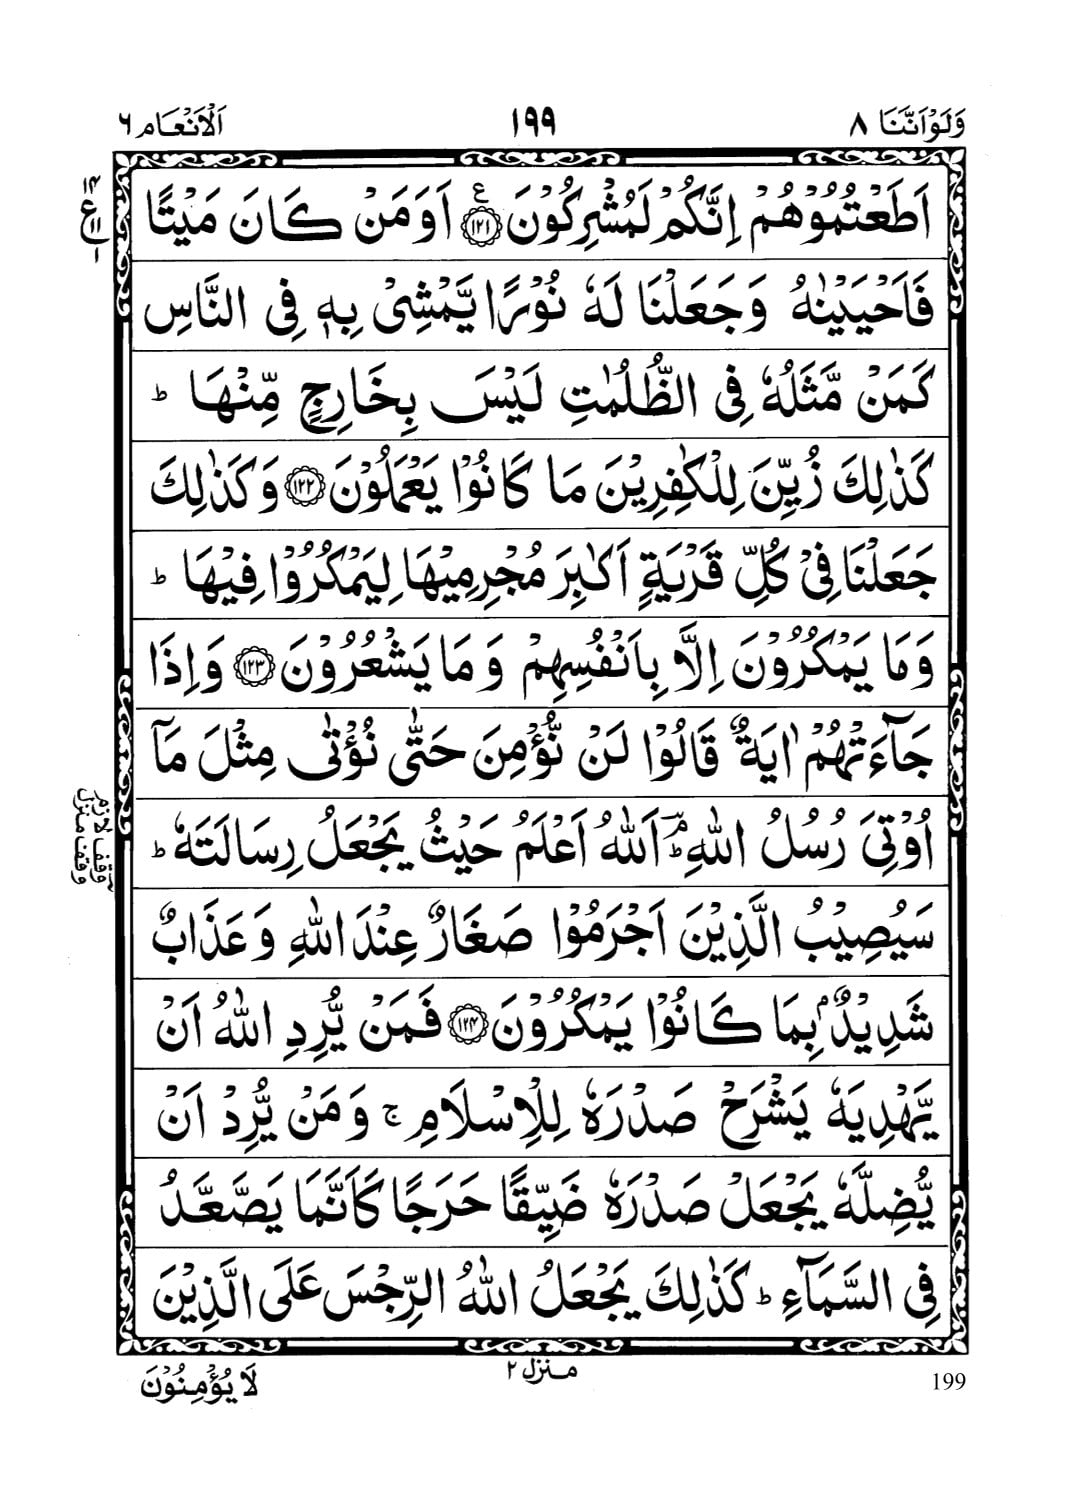 وَلَوْاَنَّنَا ٨
١٩٩
اَلْاَنْعَام ٦
اَطَعْتُمُوْهُمْ اِنَّكُمْ لَمُشْرِكُوْنَ ۧ﴿١٢١﴾ اَوَمَنْ كَانَ مَيْتًا
١٤
ع
١١
١
فَاَحْيَيْنٰهُ وَجَعَلْنَا لَهٗ نُوْرًا يَّمْشِىْ بِهٖ فِى النَّاسِ
كَمَنْ مَّثَلُهٗ فِى الظُّلُمٰتِ لَيْسَ بِخَارِجٍ مِّنْهَا ؕ
كَذٰلِكَ زُيِّنَ لِلْكٰفِرِيْنَ مَا كَانُوْا يَعْمَلُوْنَ ﴿١٢٢﴾ وَكَذٰلِكَ
جَعَلْنَا فِىْ كُلِّ قَرْيَةٍ اَكٰبِرَ مُجْرِمِيْهَا لِيَمْكُرُوْا فِيْهَا ؕ
وَمَا يَمْكُرُوْنَ اِلَّا بِاَنْفُسِهِمْ وَمَا يَشْعُرُوْنَ ﴿١٢٣﴾ وَاِذَا
جَآءَتْهُمْ اٰيَةٌ قَالُوْا لَنْ نُّؤْمِنَ حَتّٰى نُؤْتٰى مِثْلَ مَاۤ
اُوْتِىَ رُسُلُ اللّٰهِ ؕۘ اَللّٰهُ اَعْلَمُ حَيْثُ يَجْعَلُ رِسَالَتَهٗ ؕ
وقف لازم
وقف منزل
سَيُصِيْبُ الَّذِيْنَ اَجْرَمُوْا صَغَارٌ عِنْدَ اللّٰهِ وَعَذَابٌ
شَدِيْدٌۢ بِمَا كَانُوْا يَمْكُرُوْنَ ﴿١٢٤﴾ فَمَنْ يُّرِدِ اللّٰهُ اَنْ
يَّهْدِيَهٗ يَشْرَحْ صَدْرَهٗ لِلْاِسْلَامِ ۚ وَمَنْ يُّرِدْ اَنْ
يُّضِلَّهٗ يَجْعَلْ صَدْرَهٗ ضَيِّقًا حَرَجًا كَاَنَّمَا يَصَّعَّدُ
فِى السَّمَآءِ ؕ كَذٰلِكَ يَجْعَلُ اللّٰهُ الرِّجْسَ عَلَى الَّذِيْنَ
منزل ٢
لَا يُؤْمِنُوْنَ
199